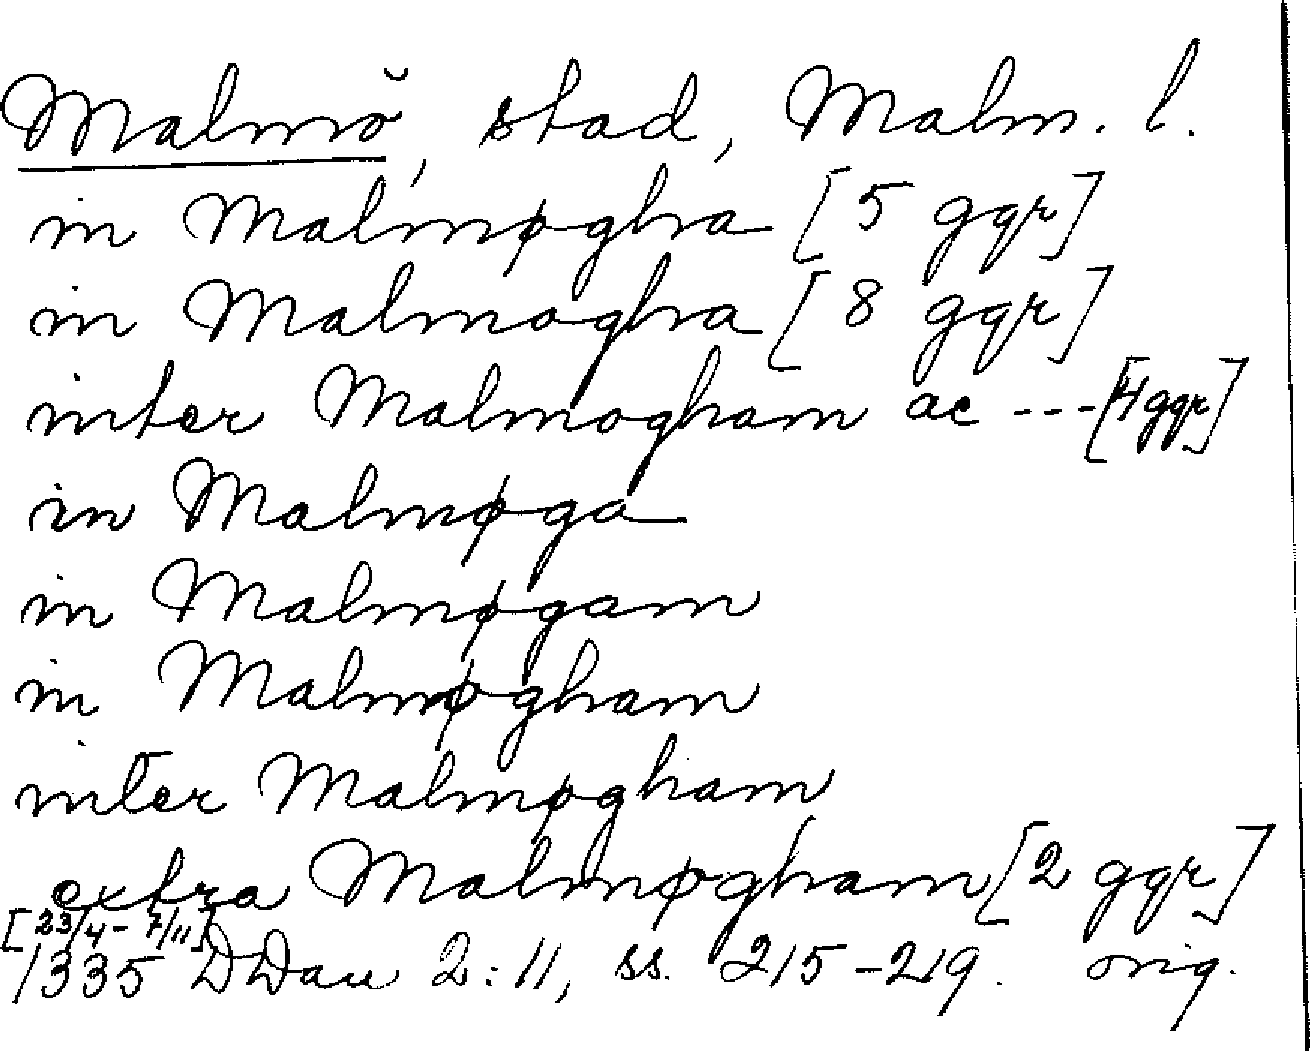 Malmö, stad, Malm. l.
in Malmøgha [5 ggr]
in Malmogha [8 ggr]
inter Malmogham ac --- [4 ggr]
in Malmøga
in Malmøgam
in Malmøgham
inter Malmøgham
extra Malmøgham [2 ggr]
[23/4 - 7/11]
1335 DDan 2:11, ss. 215-219. orig.